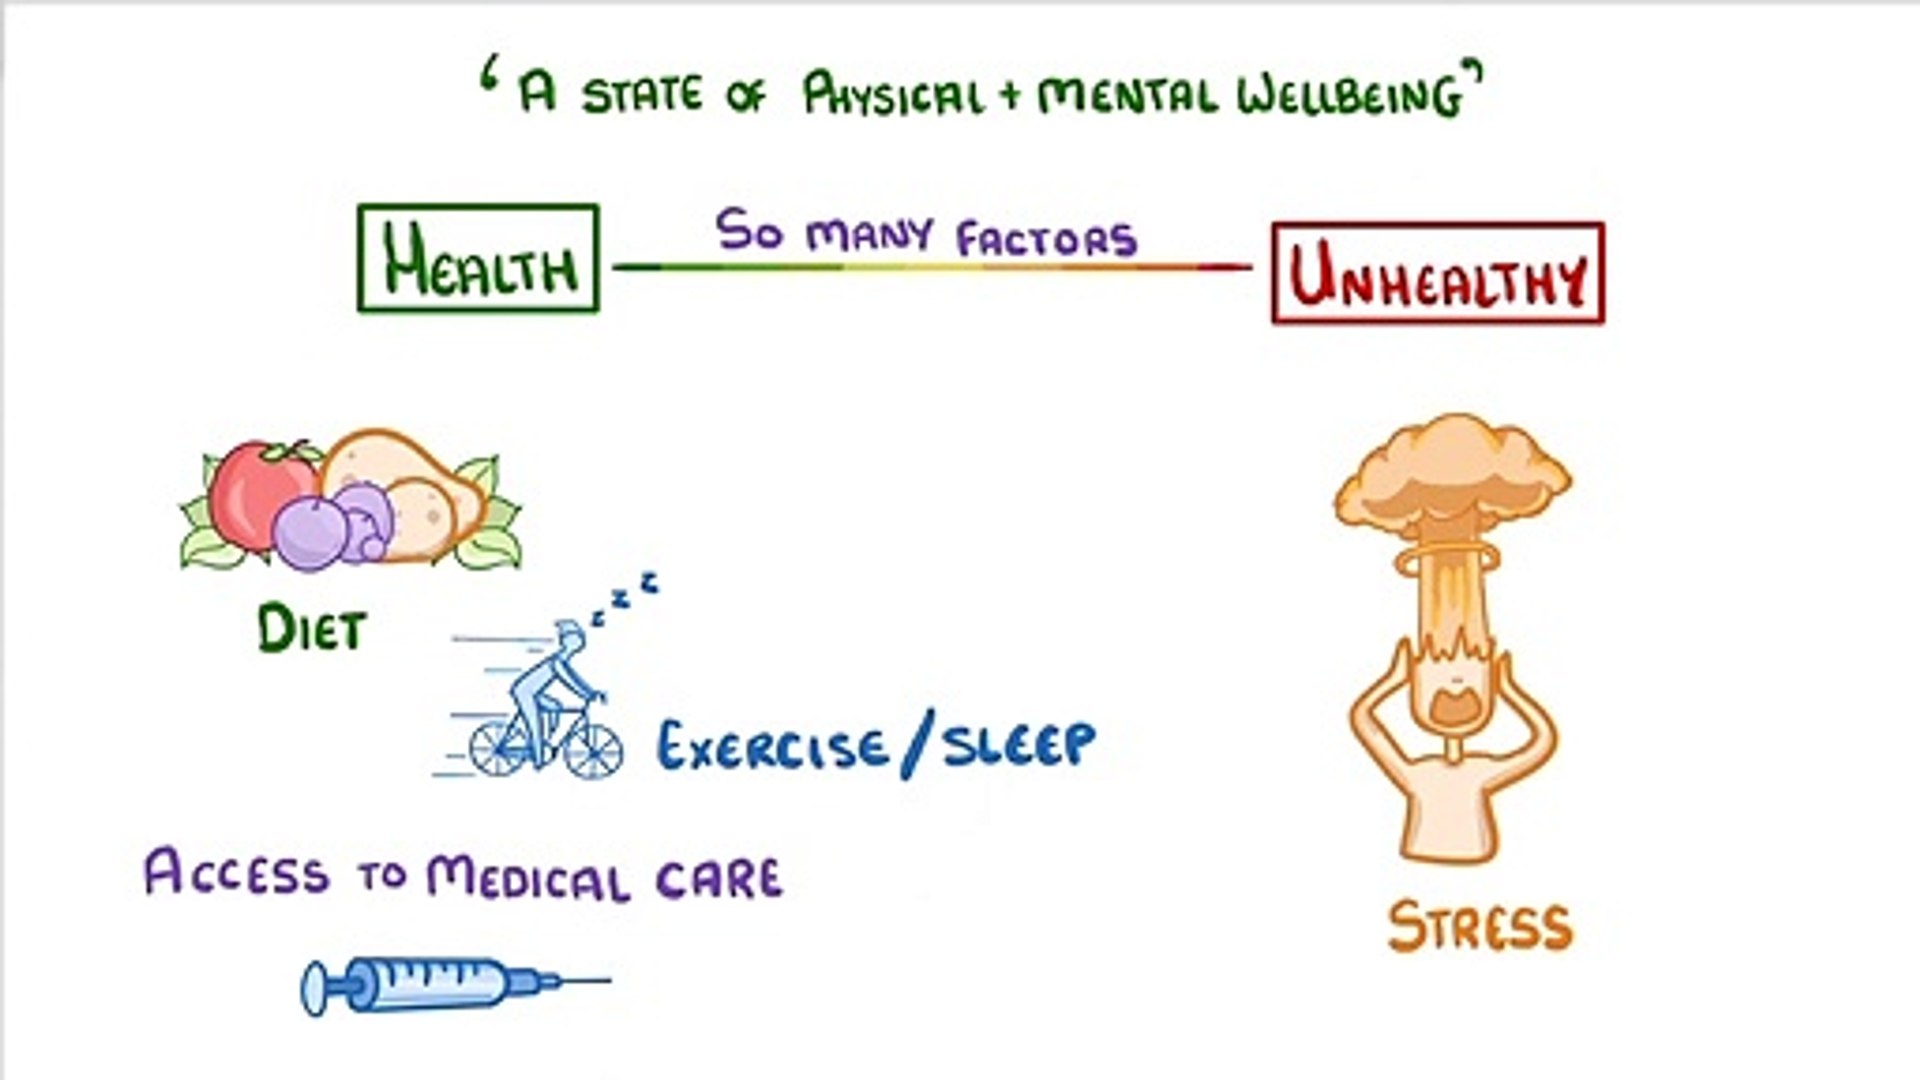 ‘A STATE OF PHYSICAL + MENTAL WELLBEING’
SO MANY FACTORS
HEALTH
UNHEALTHY
DIET
z z z
EXERCISE/SLEEP
ACCESS TO MEDICAL CARE
STRESS